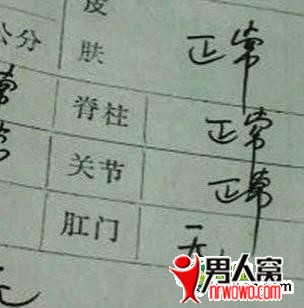 皮
公分 肤 正常
常 脊柱 正常
关节 正常
肛门 无
男人窝
nrwowo.com